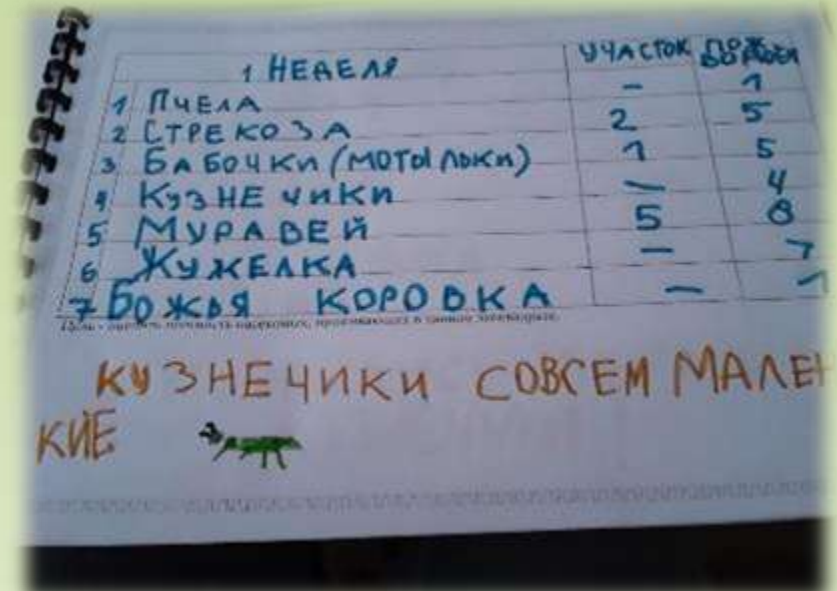 1 НЕДЕЛЯ УЧАСТОК
1 ПЧЕЛА – 1
2 СТРЕКОЗА 2 5
3 БАБОЧКИ (МОТЫЛЬКИ) 1 5
4 КУЗНЕЧИКИ – 4
5 МУРАВЕЙ 5 8
6 ЖУЖЕЛКА – 7
7 БОЖЬЯ КОРОВКА – 1
КУЗНЕЧИКИ СОВСЕМ МАЛЕН
КИЕ